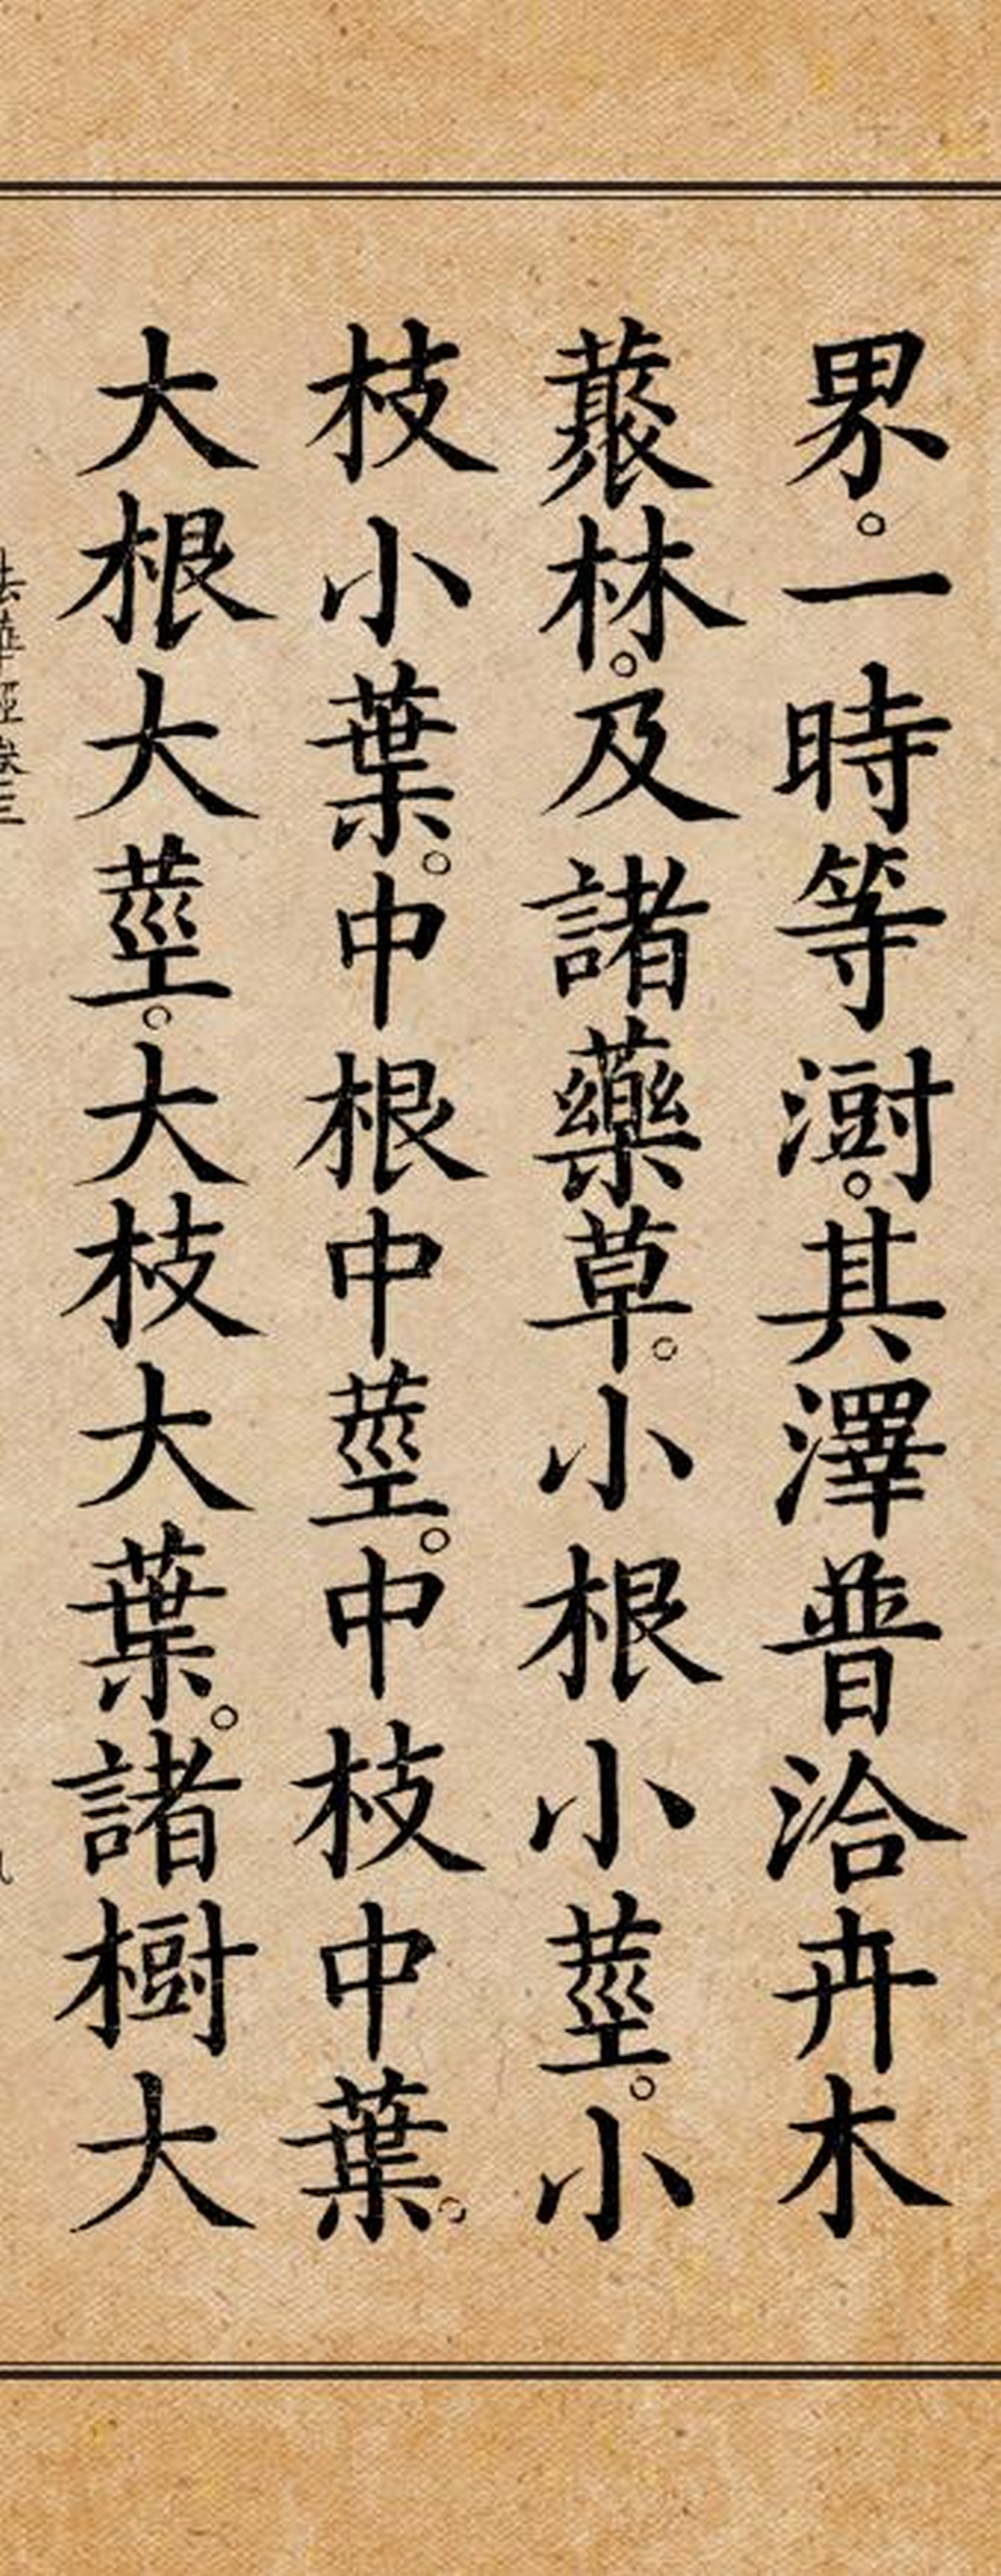 界。一時等澍。其澤普洽卉木
藂林。及諸藥草。小根小莖。小
枝小葉。中根中莖。中枝中葉。
大根大莖。大枝大葉。諸樹大
法華經卷三